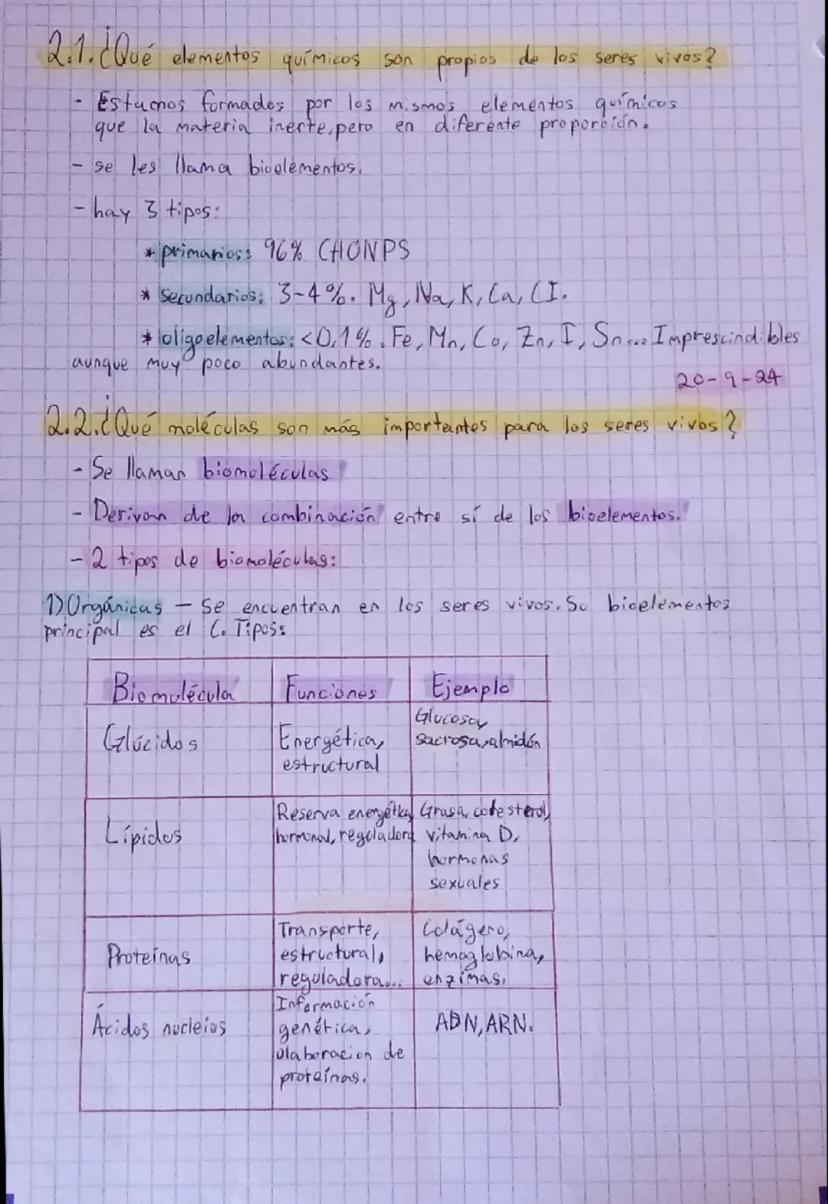 2.1. ¿Qué elementos químicos son propios de los seres vivos?
- Estamos formados por los mismos elementos químicos
que la materia inerte, pero en diferente proporción.
- se les llama bioelementos.
- hay 3 tipos:
* primarios: 96% CHONPS
* secundarios: 3-4%. Mg, Na, K, Ca, Cl.
* oligoelementos: <0,1%. Fe, Mn, Co, Zn, I, Sn... Imprescindibles
aunque muy poco abundantes.
20-9-24
2.2. ¿Qué moléculas son más importantes para los seres vivos?
- Se llaman biomoléculas
- Derivan de la combinación entre sí de los bioelementos.
- 2 tipos de biomoléculas:
1) Orgánicas - Se encuentran en los seres vivos. Su bioelementos
principal es el C. Tipos:
Biomolécula Funciones Ejemplo
Glúcidos
Energética,
estructural
Glucosa,
sacrosa, almidón
Lípidos
Reserva energética,
hormonal, reguladora
Grasa, colesterol,
vitamina D,
hormonas
sexuales
Proteínas
Transporte,
estructural,
reguladora...
Colágeno,
hemoglobina,
enzimas.
Ácidos nucleios
Información
genética,
elaboracion de
proteínas.
ADN, ARN.